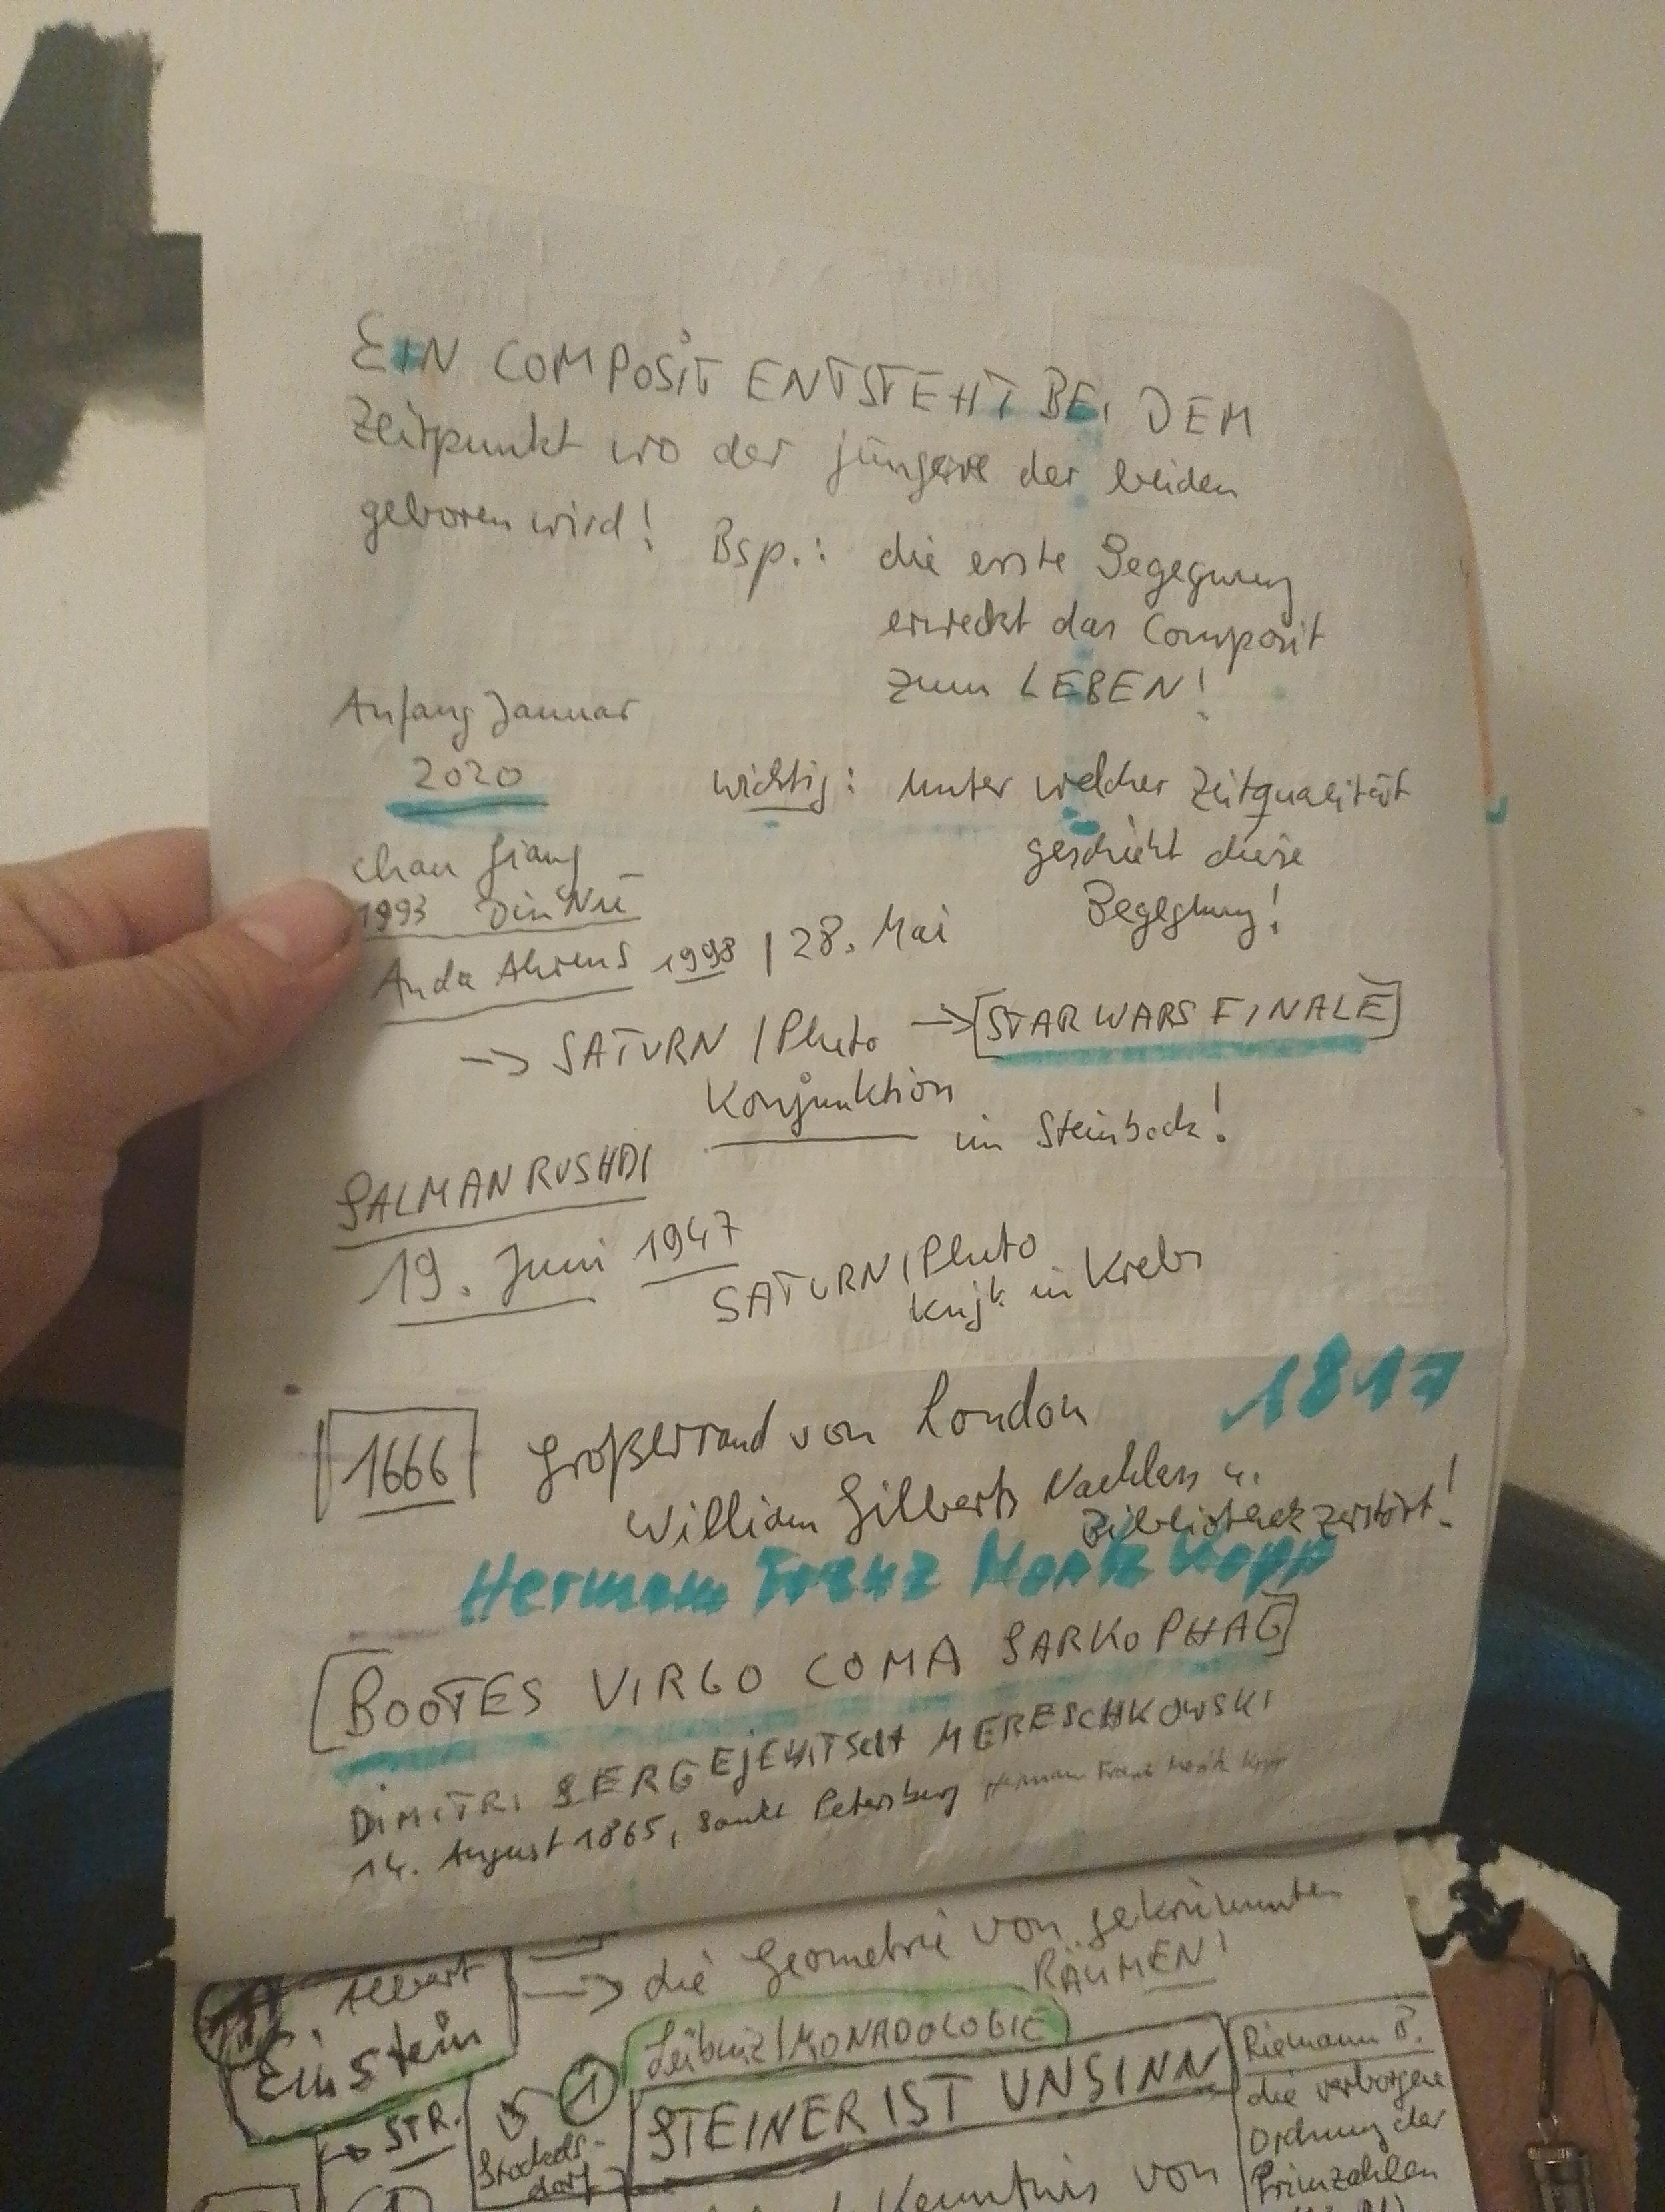 EIN COMPOSIT ENTSTEHT BEI DEM
Zeitpunkt wo der jüngere der beiden
geboren wird!
Bsp.: die erste Begegnung
erweckt das Composit
zum LEBEN!
Anfang Januar
2020
wichtig: unter welcher Zeitqualität
geschieht diese
Begegnung!
1993
Anda Ahrens 1998 | 28. Mai
-> SATURN / Pluto -> [STAR WARS FINALE]
Konjunktion
im Steinbock!
SALMAN RUSHDI
19. Juni 1947
SATURN / Pluto
in Krebs
1817
1666 Großbrand von London
William Gilberts Nachlass u.
Bibliothek zerstört!
Hermann Franz Moritz Kopp
[BOOTES VIRGO COMA SARKOPHAG]
DIMITRI SERGEJEWITSCH MERESCHKOWSKI
14. August 1865, Sankt Petersburg Hermann Franz Moritz Kopp
Albert
Einstein
-> die Geometrie von gekrümmten
RÄUMEN!
Leibniz / MONADOLOGIE
1
STEINER IST UNSINN
-> STR.
Stockels-
dorf
Riemann B.
die verborgene
Ordnung der
Primzahlen
Kenntnis von